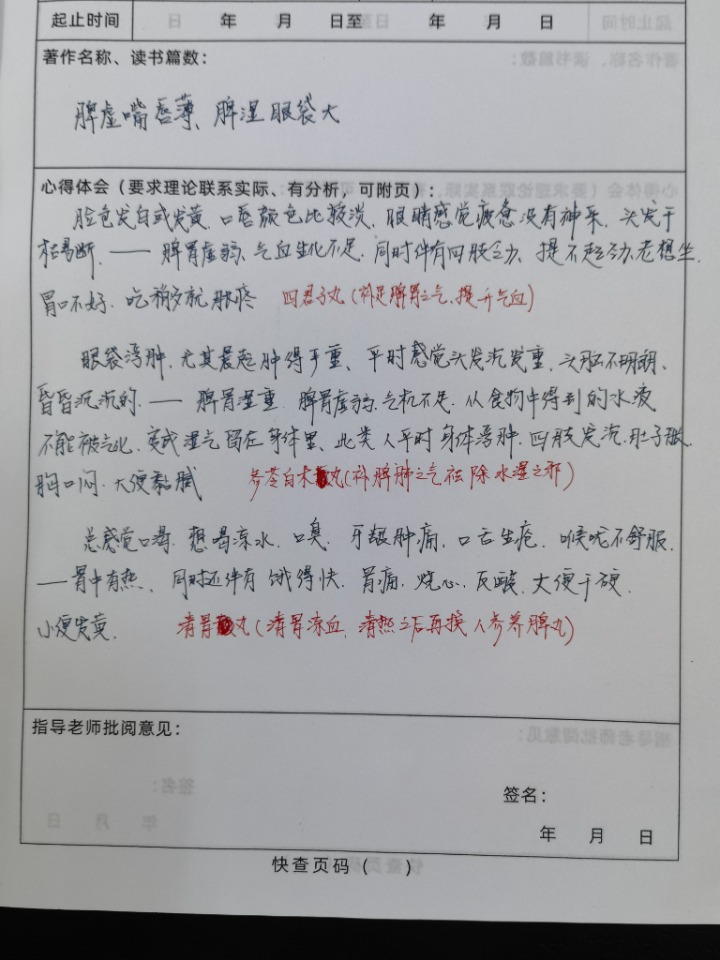 起止时间 年 月 日至 年 月 日
著作名称、读书篇数：
脾虚嘴唇薄、脾湿眼袋大
心得体会（要求理论联系实际、有分析，可附页）：
脸色发白或发黄、口唇颜色比较淡、眼睛感觉疲惫没有神采、头发干
枯易断、—— 脾胃虚弱、气血生化不足、同时伴有四肢乏力、提不起劲、老想坐
胃口不好、吃稍多就胀疼 四君子丸（补足脾胃之气、提升气血）
眼袋浮肿、尤其晨起肿得严重、平时感觉头发沉发重、头脑不明朗、
昏昏沉沉的、—— 脾胃湿重 脾胃虚弱、气机不足、从食物中得到的水液
不能被气化、变成湿气留在身体里、此类人平时身体浮肿、四肢发沉、肚子胀
胸口闷、大便黏腻 参苓白术丸（补脾肺之气祛除水湿之邪）
总感觉口渴、想喝凉水、口臭、牙龈肿痛、口舌生疮、喉咙不舒服、
——胃中有热、同时还伴有饿得快、胃痛、烧心、反酸、大便干硬、
小便发黄、 清胃丸（清胃凉血、清热之后再换人参养脾丸）
指导老师批阅意见：
签名：
年 月 日
快查页码（ ）